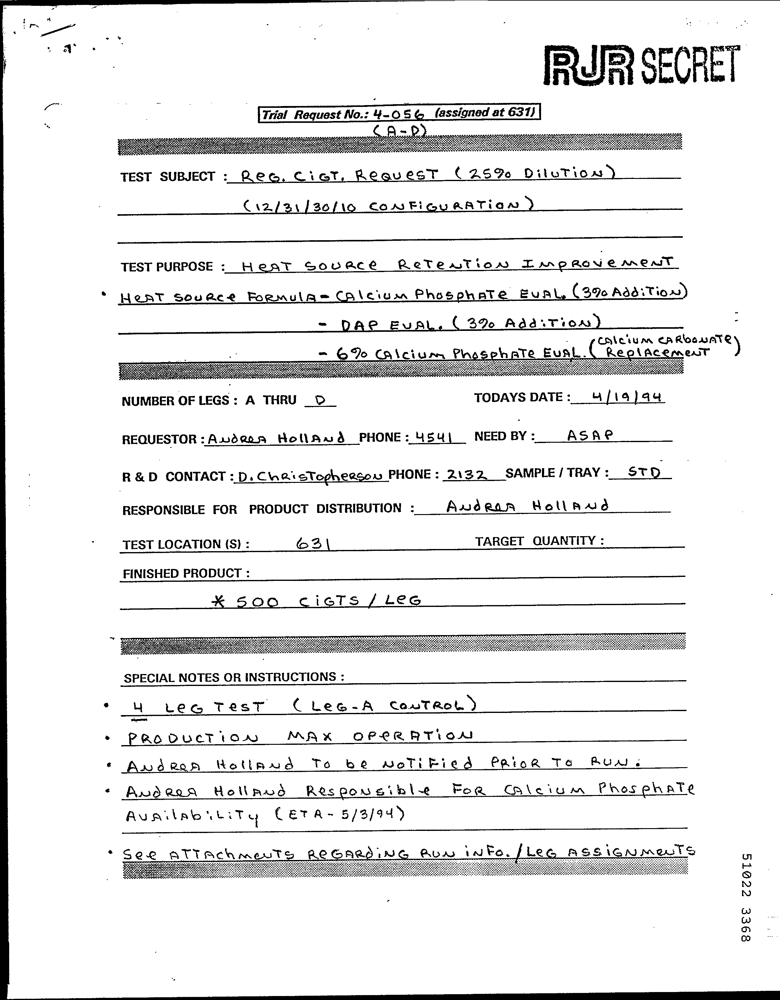 RJR SECRET
Trial Request No.: 4-056 (assigned at 631)
(A-D)
TEST SUBJECT : Reg. Cigt. Request (25% Dilution)
(12/31/30/10 Configuration)
TEST PURPOSE : Heat Source Retention Improvement
• Heat Source Formula - Calcium Phosphate Eval. (3% Addition)
- DAP Eval. (3% Addition)
- 6% Calcium Phosphate Eval. (Calcium Carbonate Replacement)
NUMBER OF LEGS : A THRU D TODAYS DATE : 4/19/94
REQUESTOR : Andrea Holland PHONE : 4541 NEED BY : ASAP
R & D CONTACT : D. Christopherson PHONE : 2132 SAMPLE / TRAY : STD
RESPONSIBLE FOR PRODUCT DISTRIBUTION : Andrea Holland
TEST LOCATION (S) : 631 TARGET QUANTITY :
FINISHED PRODUCT :
* 500 Cigts / Leg
SPECIAL NOTES OR INSTRUCTIONS :
• 4 Leg Test (Leg-A Control)
• Production Max Operation
• Andrea Holland to be notified prior to run.
• Andrea Holland Responsible for Calcium Phosphate
Availability (ETA - 5/3/94)
• See Attachments Regarding Run info. / Leg Assignments
51022 3368